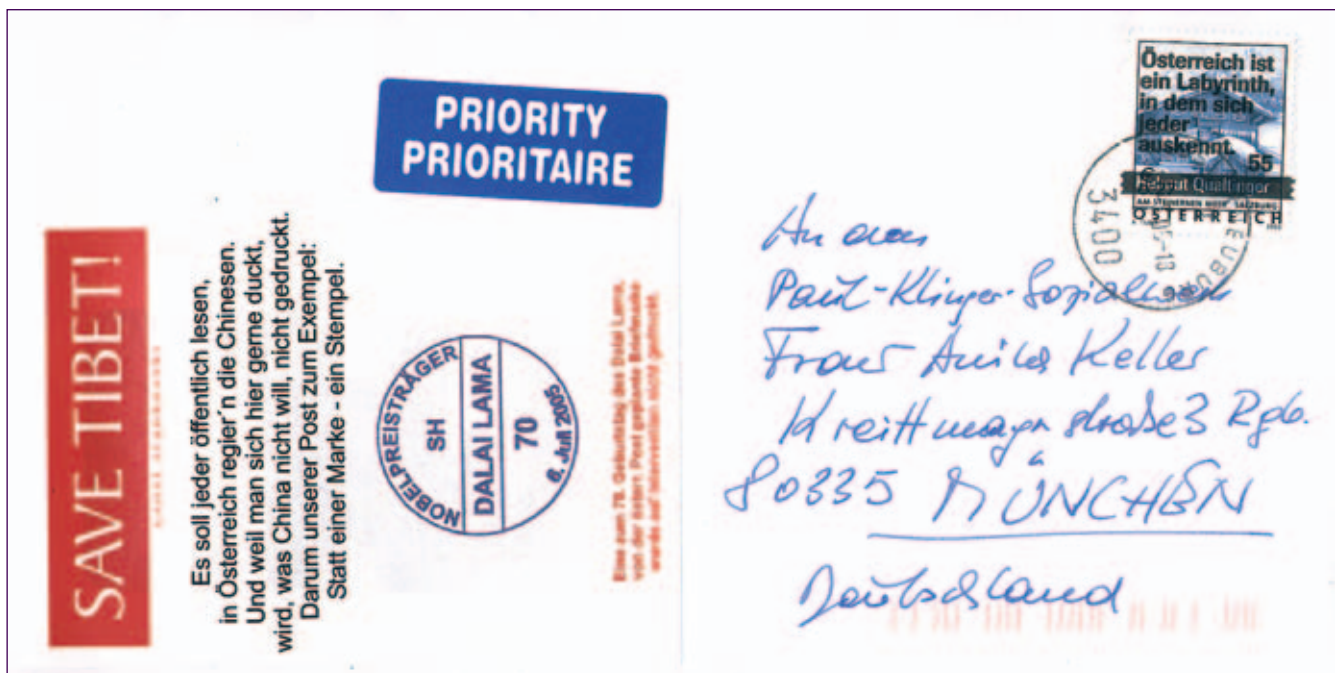 SAVE TIBET!
Es soll jeder öffentlich lesen,
in Österreich regier´n die Chinesen.
Und weil man sich hier gerne duckt,
wird, was China nicht will, nicht gedruckt.
Darum unserer Post zum Exempel:
Statt einer Marke - ein Stempel.
PRIORITY
PRIORITAIRE
NOBELPREISTRÄGER
SH
DALAI LAMA
70
6. Juli 2005
Eine zum 70. Geburtstag des Dalai Lama,
von der österr. Post geplante Briefmarke
wurde auf Intervention nicht gedruckt.
Österreich ist
ein Labyrinth,
in dem sich
jeder
auskennt.
55
Helmut Qualtinger
AM STEINERNEN MEER SALZBURG
ÖSTERREICH
3400
An das
Paul-Klinger-Sozialwerk
Frau Anila Keller
Kreittmayrstraße 3 Rgb.
80335 MÜNCHEN
Deutschland